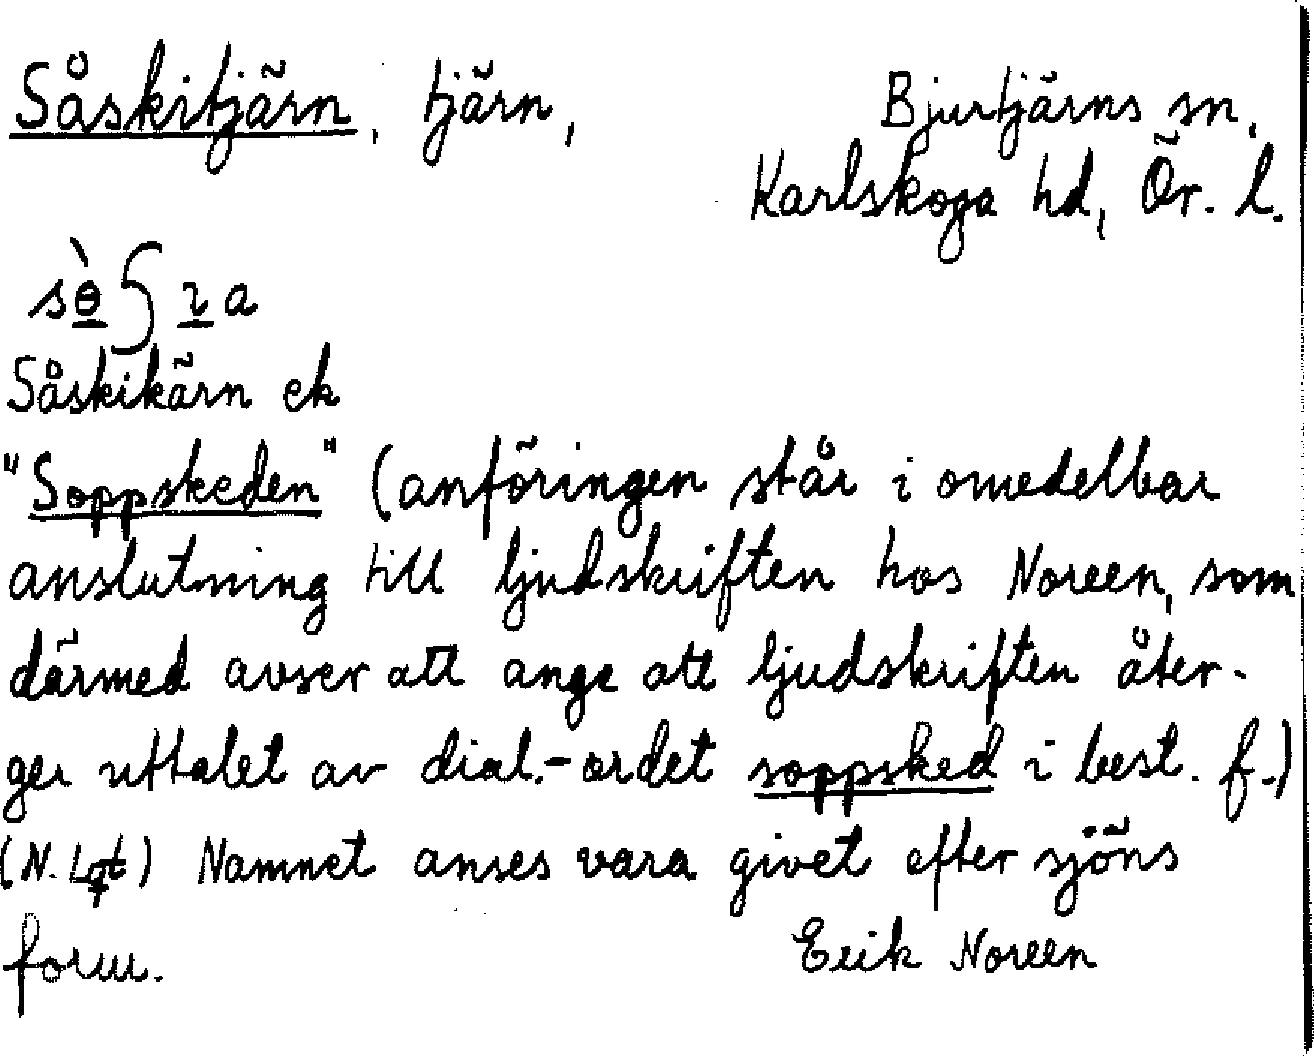 Såskitjärn, tjärn, Bjurtjärns sn,
Karlskoga hd, Ör. l.
Såskikärn ek
"Soppskeden" (anföringen står i omedelbar
anslutning till ljudskriften hos Noreen, som
därmed avser att ange att ljudskriften åter-
ger uttalet av dial.-ordet soppsked i best. f.)
(N. Lqt) Namnet anses vara givet efter sjöns
form. Erik Noreen